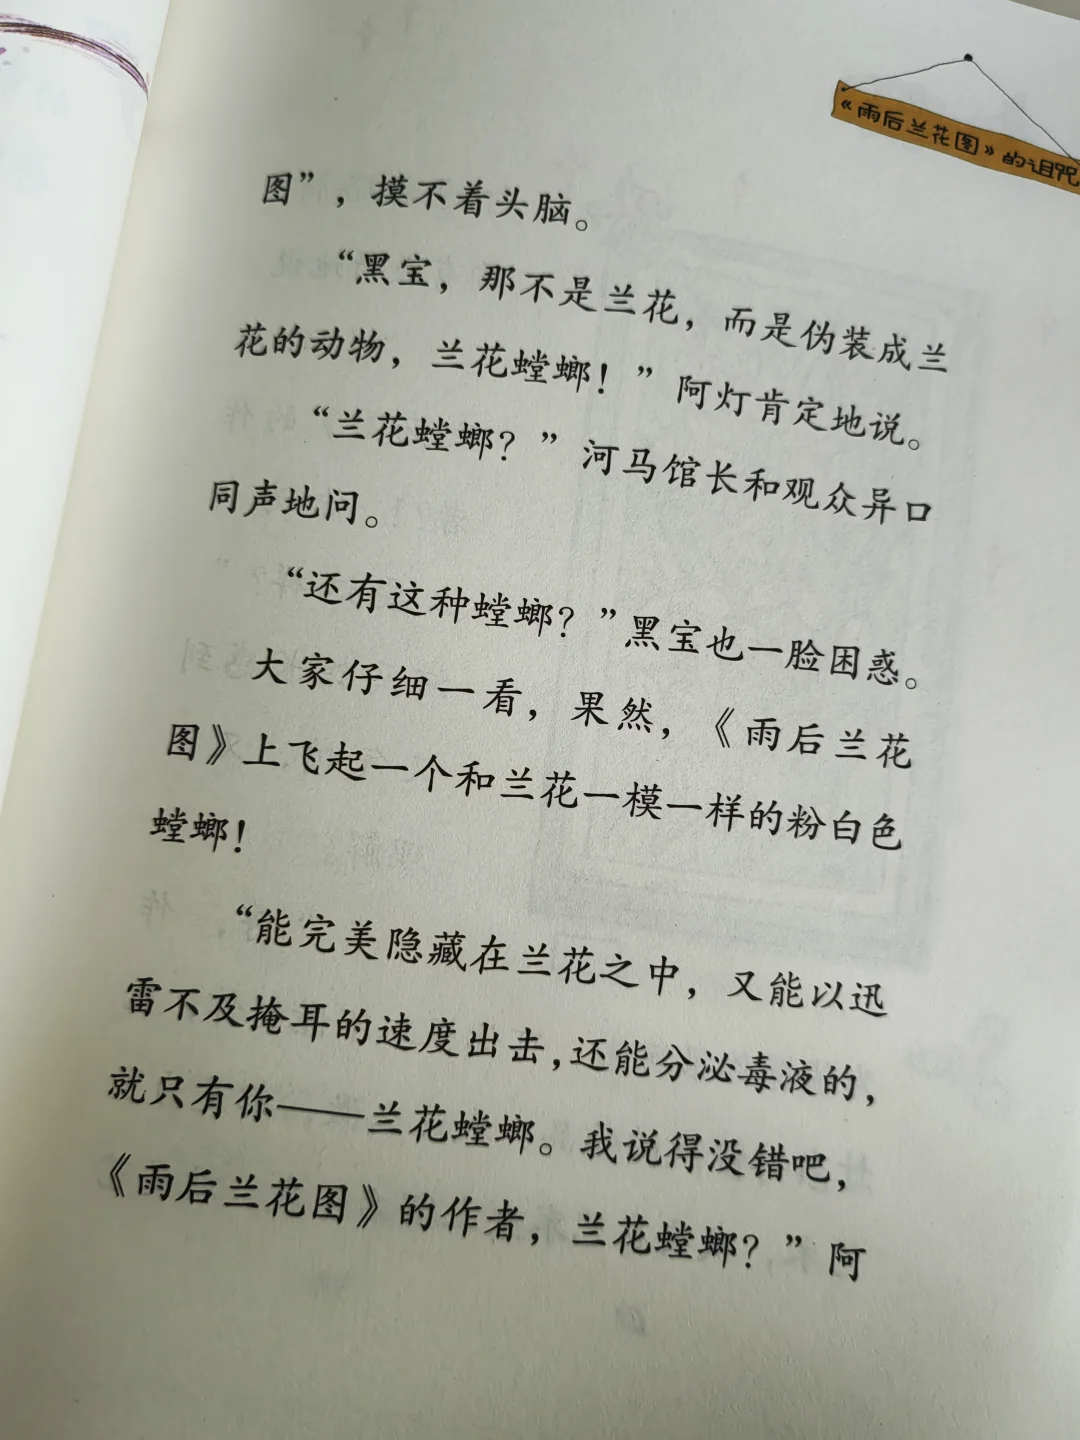 《雨后兰花图》的诅咒
图”，摸不着头脑。
“黑宝，那不是兰花，而是伪装成兰
花的动物，兰花螳螂！”阿灯肯定地说。
“兰花螳螂？”河马馆长和观众异口
同声地问。
“还有这种螳螂？”黑宝也一脸困惑。
大家仔细一看，果然，《雨后兰花
图》上飞起一个和兰花一模一样的粉白色
螳螂！
“能完美隐藏在兰花之中，又能以迅
雷不及掩耳的速度出击，还能分泌毒液的，
就只有你——兰花螳螂。我说得没错吧，
《雨后兰花图》的作者，兰花螳螂？”阿